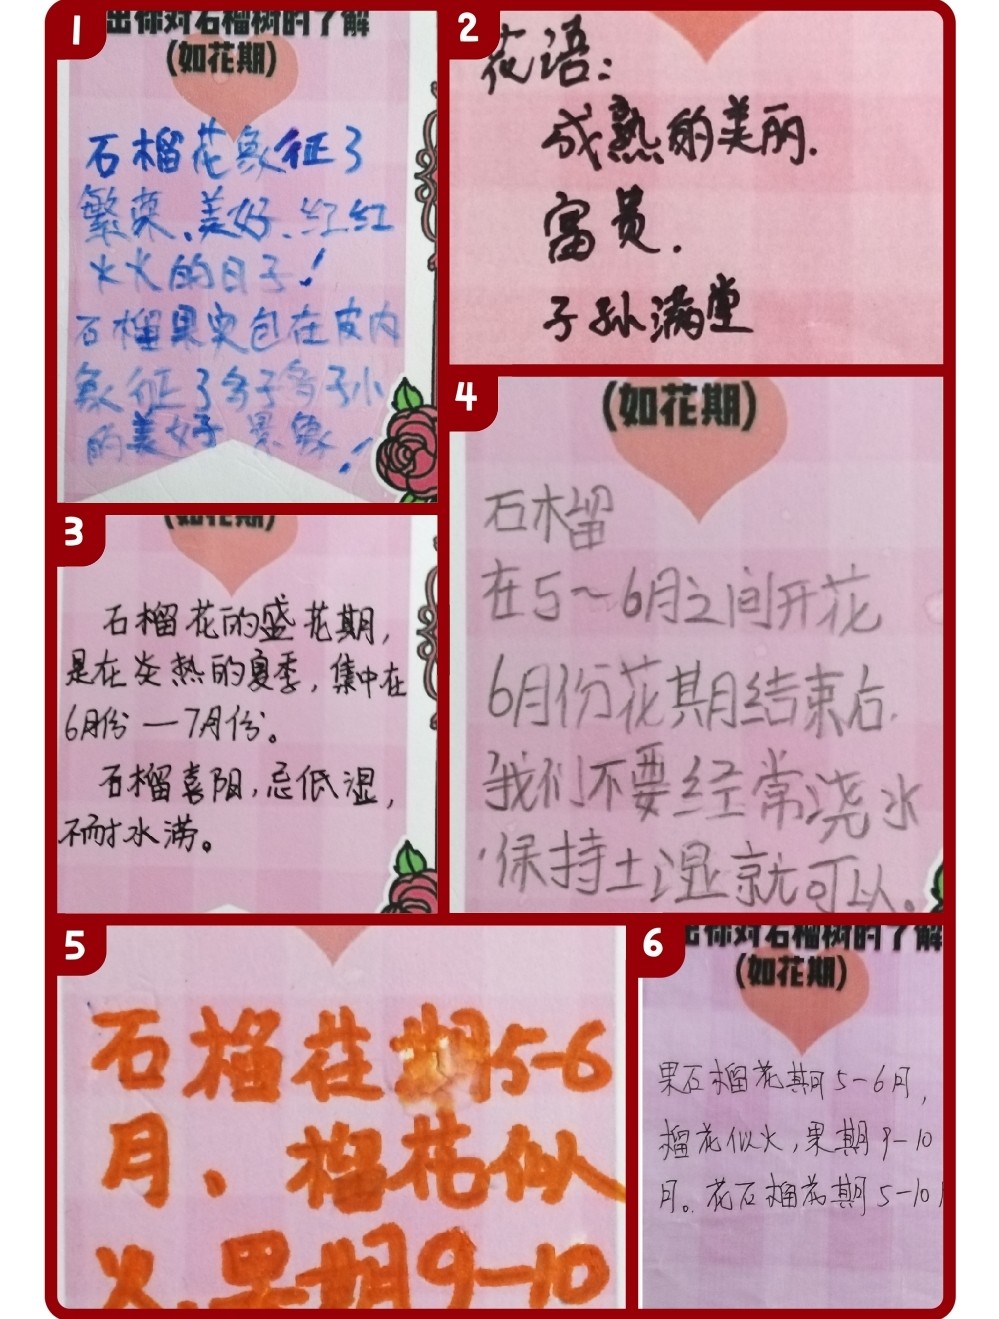 1
出你对石榴树的了解
(如花期)
石榴花象征了
繁荣、美好、红红
火火的日子！
石榴果实包在皮内
象征了多子多孙
的美好景象！
2
花语：
成熟的美丽.
富贵.
子孙满堂
3
(如花期)
石榴花的盛花期，
是在炎热的夏季，集中在
6月份一7月份。
石榴喜阳，忌低湿，
不耐水满。
4
(如花期)
石榴
在5～6月之间开花
6月份花期结束后.
我们不要经常浇水
.保持土湿就可以。
5
石榴花期5-6
月、榴花似
火.果期9-10
6
出你对石榴树的了解
(如花期)
果石榴花期5-6月，
榴花似火，果期9-10
月。花石榴花期5-10